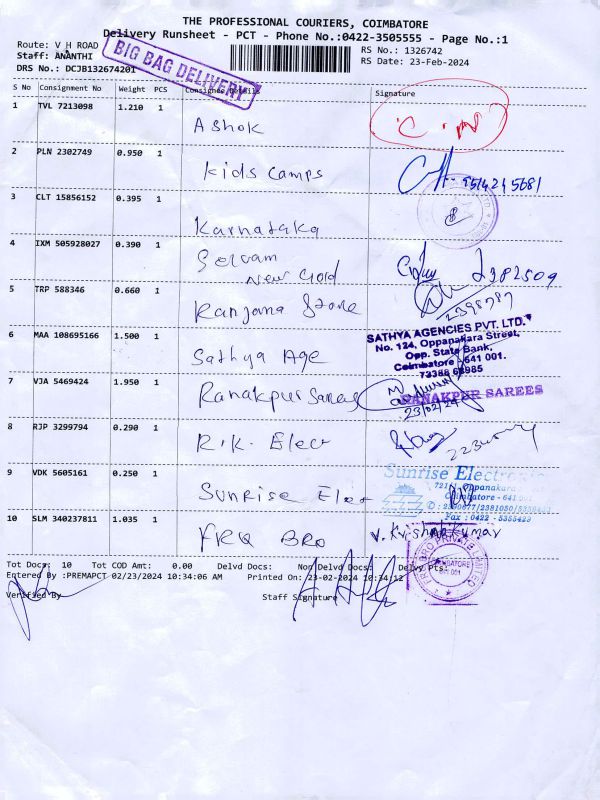 THE PROFESSIONAL COURIERS, COIMBATORE
Delivery Runsheet - PCT - Phone No.:0422-3505555 - Page No.:1
Route: V H ROAD
RS No.: 1326742
Staff: ANANTHI
RS Date: 23-Feb-2024
DRS No.: DCJB132674201
BIG BAG DELIVERY
S No Consignment No Weight PCS Consignee Details Signature
1 TVL 7213098 1.210 1 Ashok
2 PLN 2302749 0.950 1 Kids Camps
3 CLT 15856152 0.395 1 Karnataka
4 IXM 505928027 0.390 1 Selvam New Gold 2382509
5 TRP 588346 0.660 1 Ranjana Store 2398787
6 MAA 108695166 1.500 1 Sathya Age
SATHYA AGENCIES PVT. LTD.
No. 124, Oppanakara Street,
Opp. State Bank,
Coimbatore - 641 001.
7 VJA 5469424 1.950 1 Ranakpur Sarees
RANAKPUR SAREES
23/02/24
8 RJP 3299794 0.290 1 R.K. Elect
9 VDK 5605161 0.250 1 Sunrise Elect
Sunrise Electronics
Oppanakara
Coimbatore - 641 001
Fax : 0422 - 5355423
10 SLM 340237811 1.035 1 FRQ BRO V. Krishnakumar
Tot Docs: 10 Tot COD Amt: 0.00 Delvd Docs: Non Delvd Docs: Delvy Pts:
Entered By :PREMAPCT 02/23/2024 10:34:06 AM Printed On: 23-02-2024 10:34:12
Verified By Staff Signature